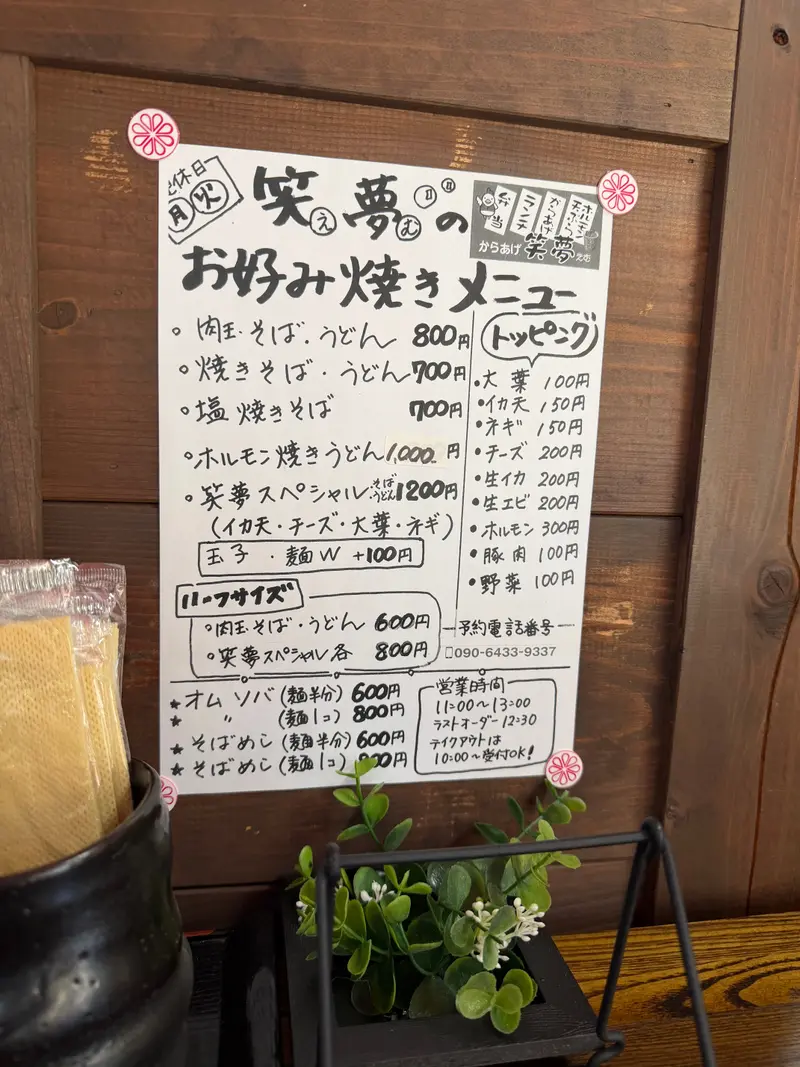 定休日
月 火
笑夢の
えむ
お好み焼きメニュー
弁当
ランチ
からあげ
ホルモン天ぷら
からあげ 笑夢 えむ
。肉玉そば・うどん 800円
。焼きそば・うどん 700円
。塩焼きそば 700円
。ホルモン焼きうどん 1,000.円
。笑夢スペシャル そば・うどん 1200円
(イカ天・チーズ・大葉・ネギ)
玉子・麺W +100円
ハーフサイズ
。肉玉そば・うどん 600円
。笑夢スペシャル各 800円
トッピング
・大葉 100円
・イカ天 150円
・ネギ 150円
・チーズ 200円
・生イカ 200円
・生エビ 200円
・ホルモン 300円
・豚肉 100円
・野菜 100円
予約電話番号
090-6433-9337
★オムソバ(麺半分)600円
★ 〃 (麺1コ)800円
★そばめし(麺半分)600円
★そばめし(麺1コ)800円
営業時間
11:00~13:00
ラストオーダー 12:30
テイクアウトは
10:00~受付OK!